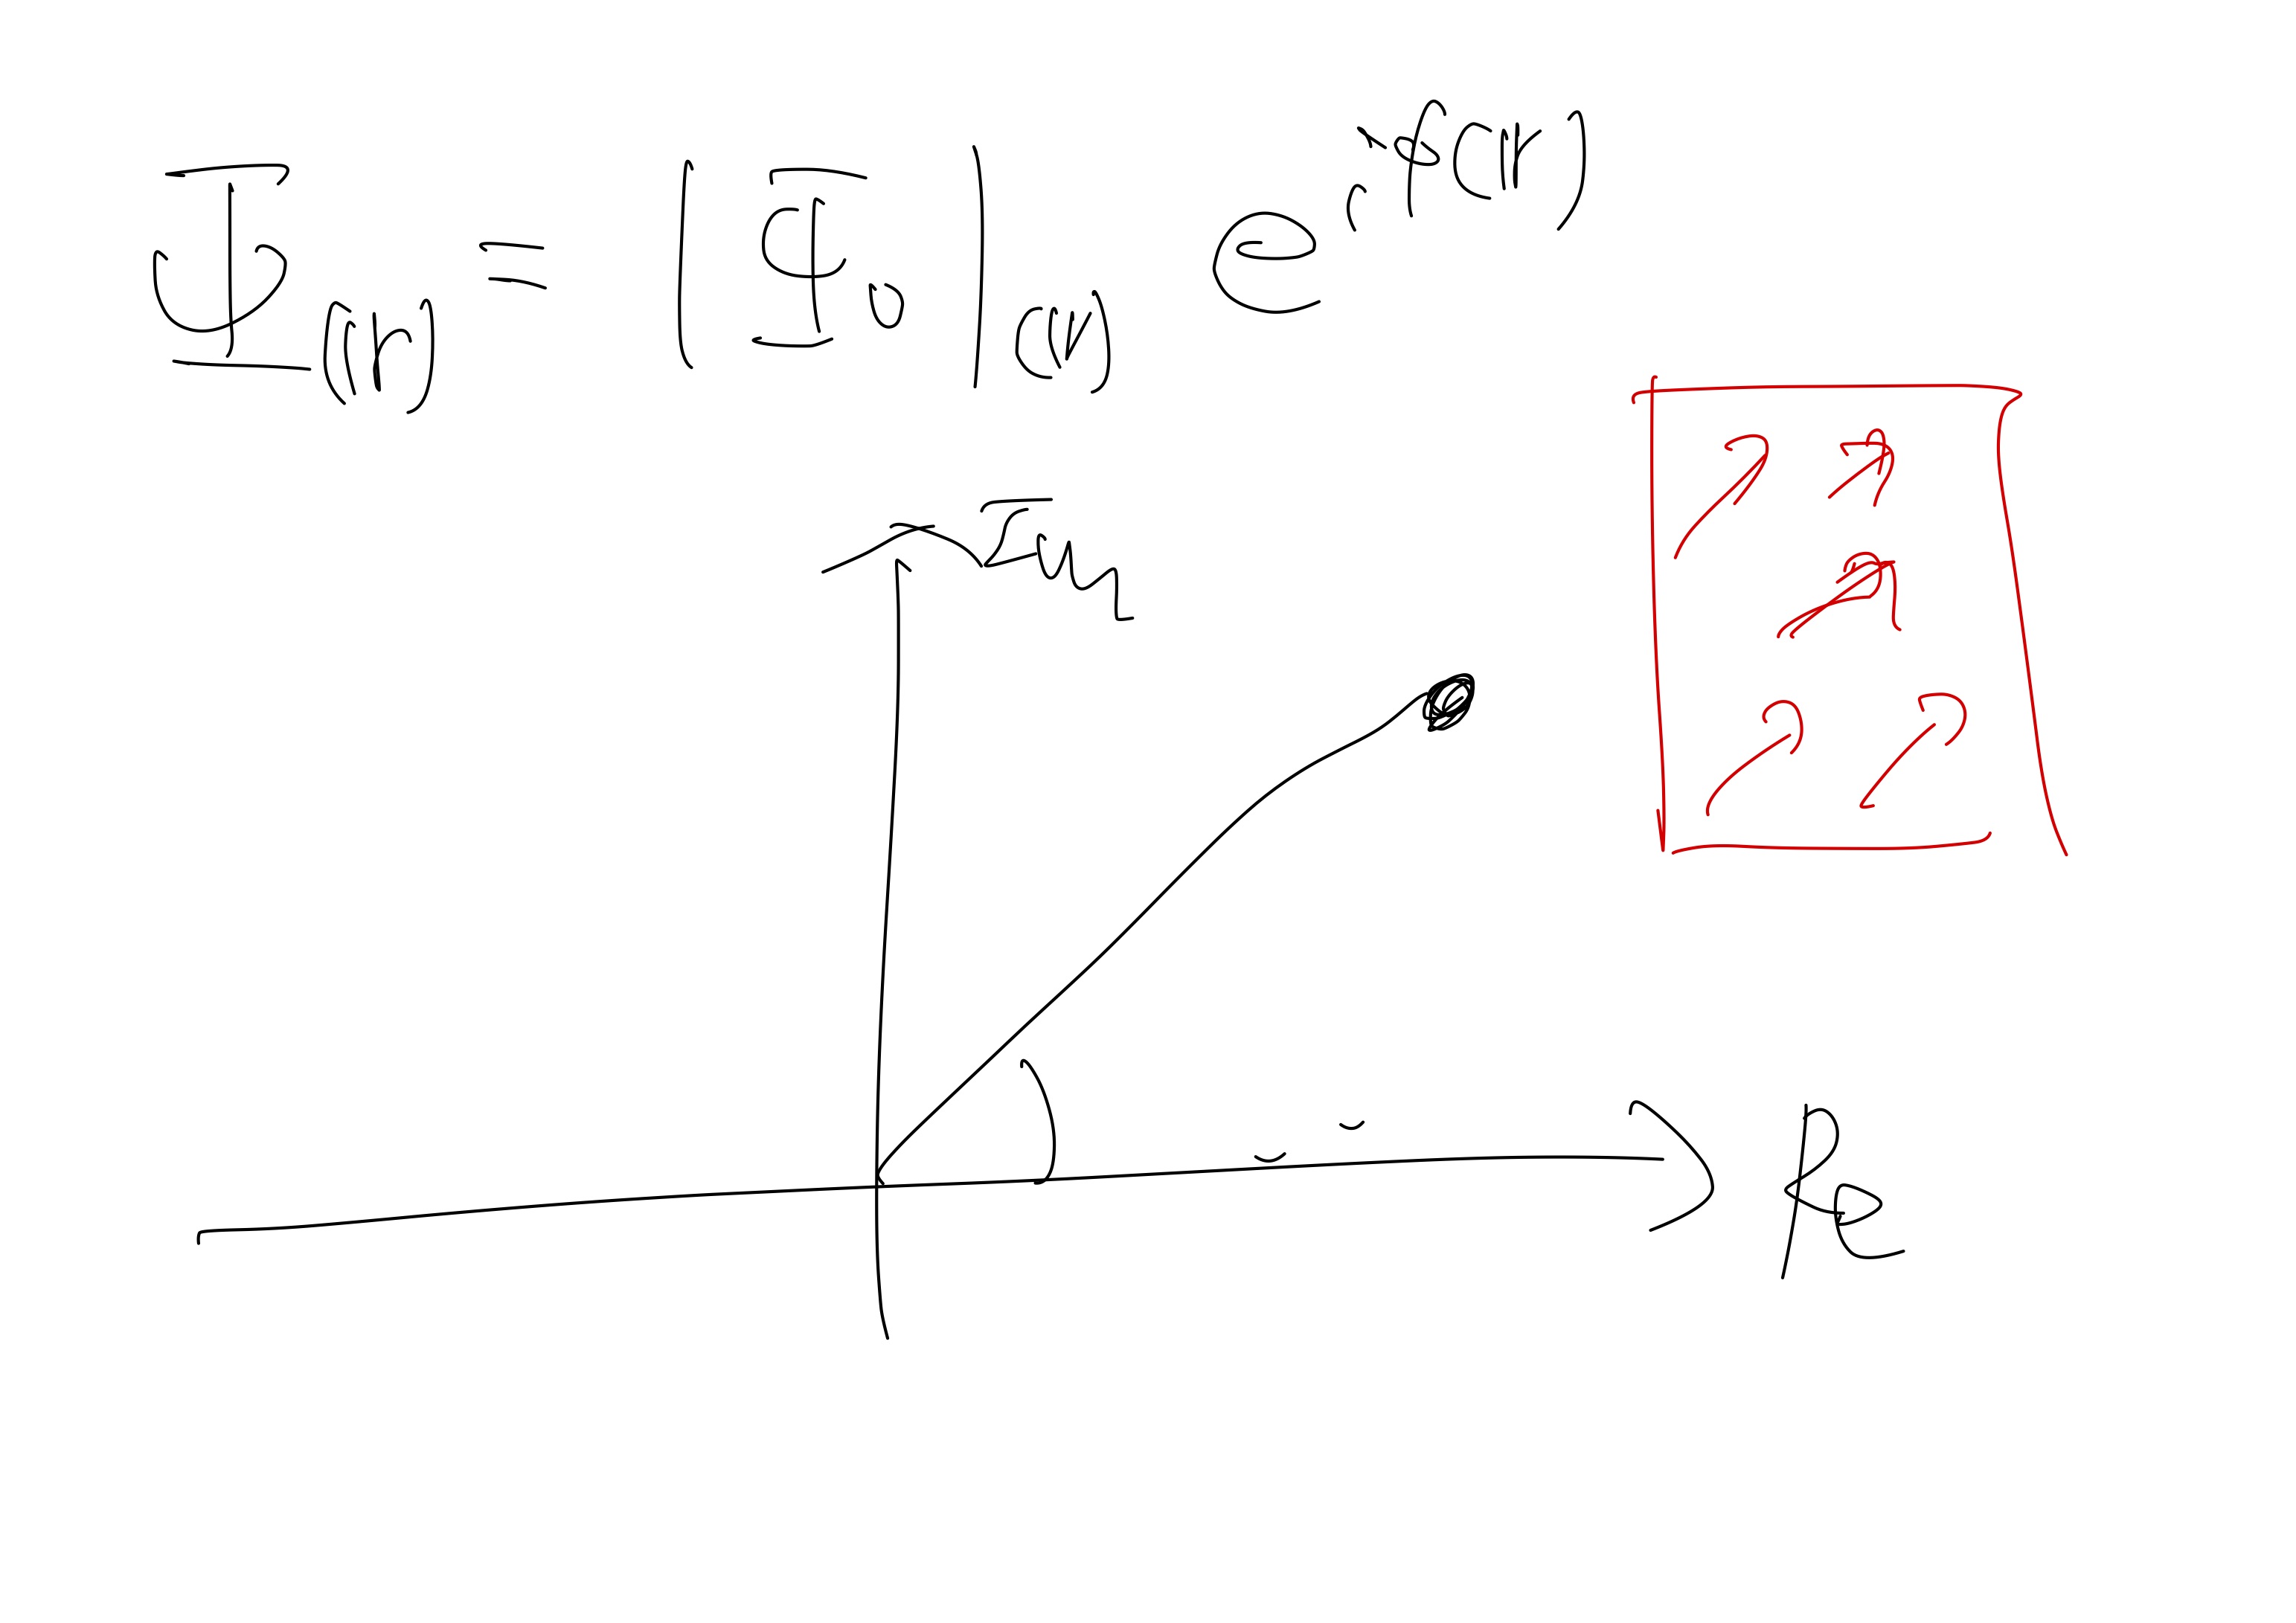 Ψ(r) = |Φ₀|(r) e^{iφ(r)}
Im
Re